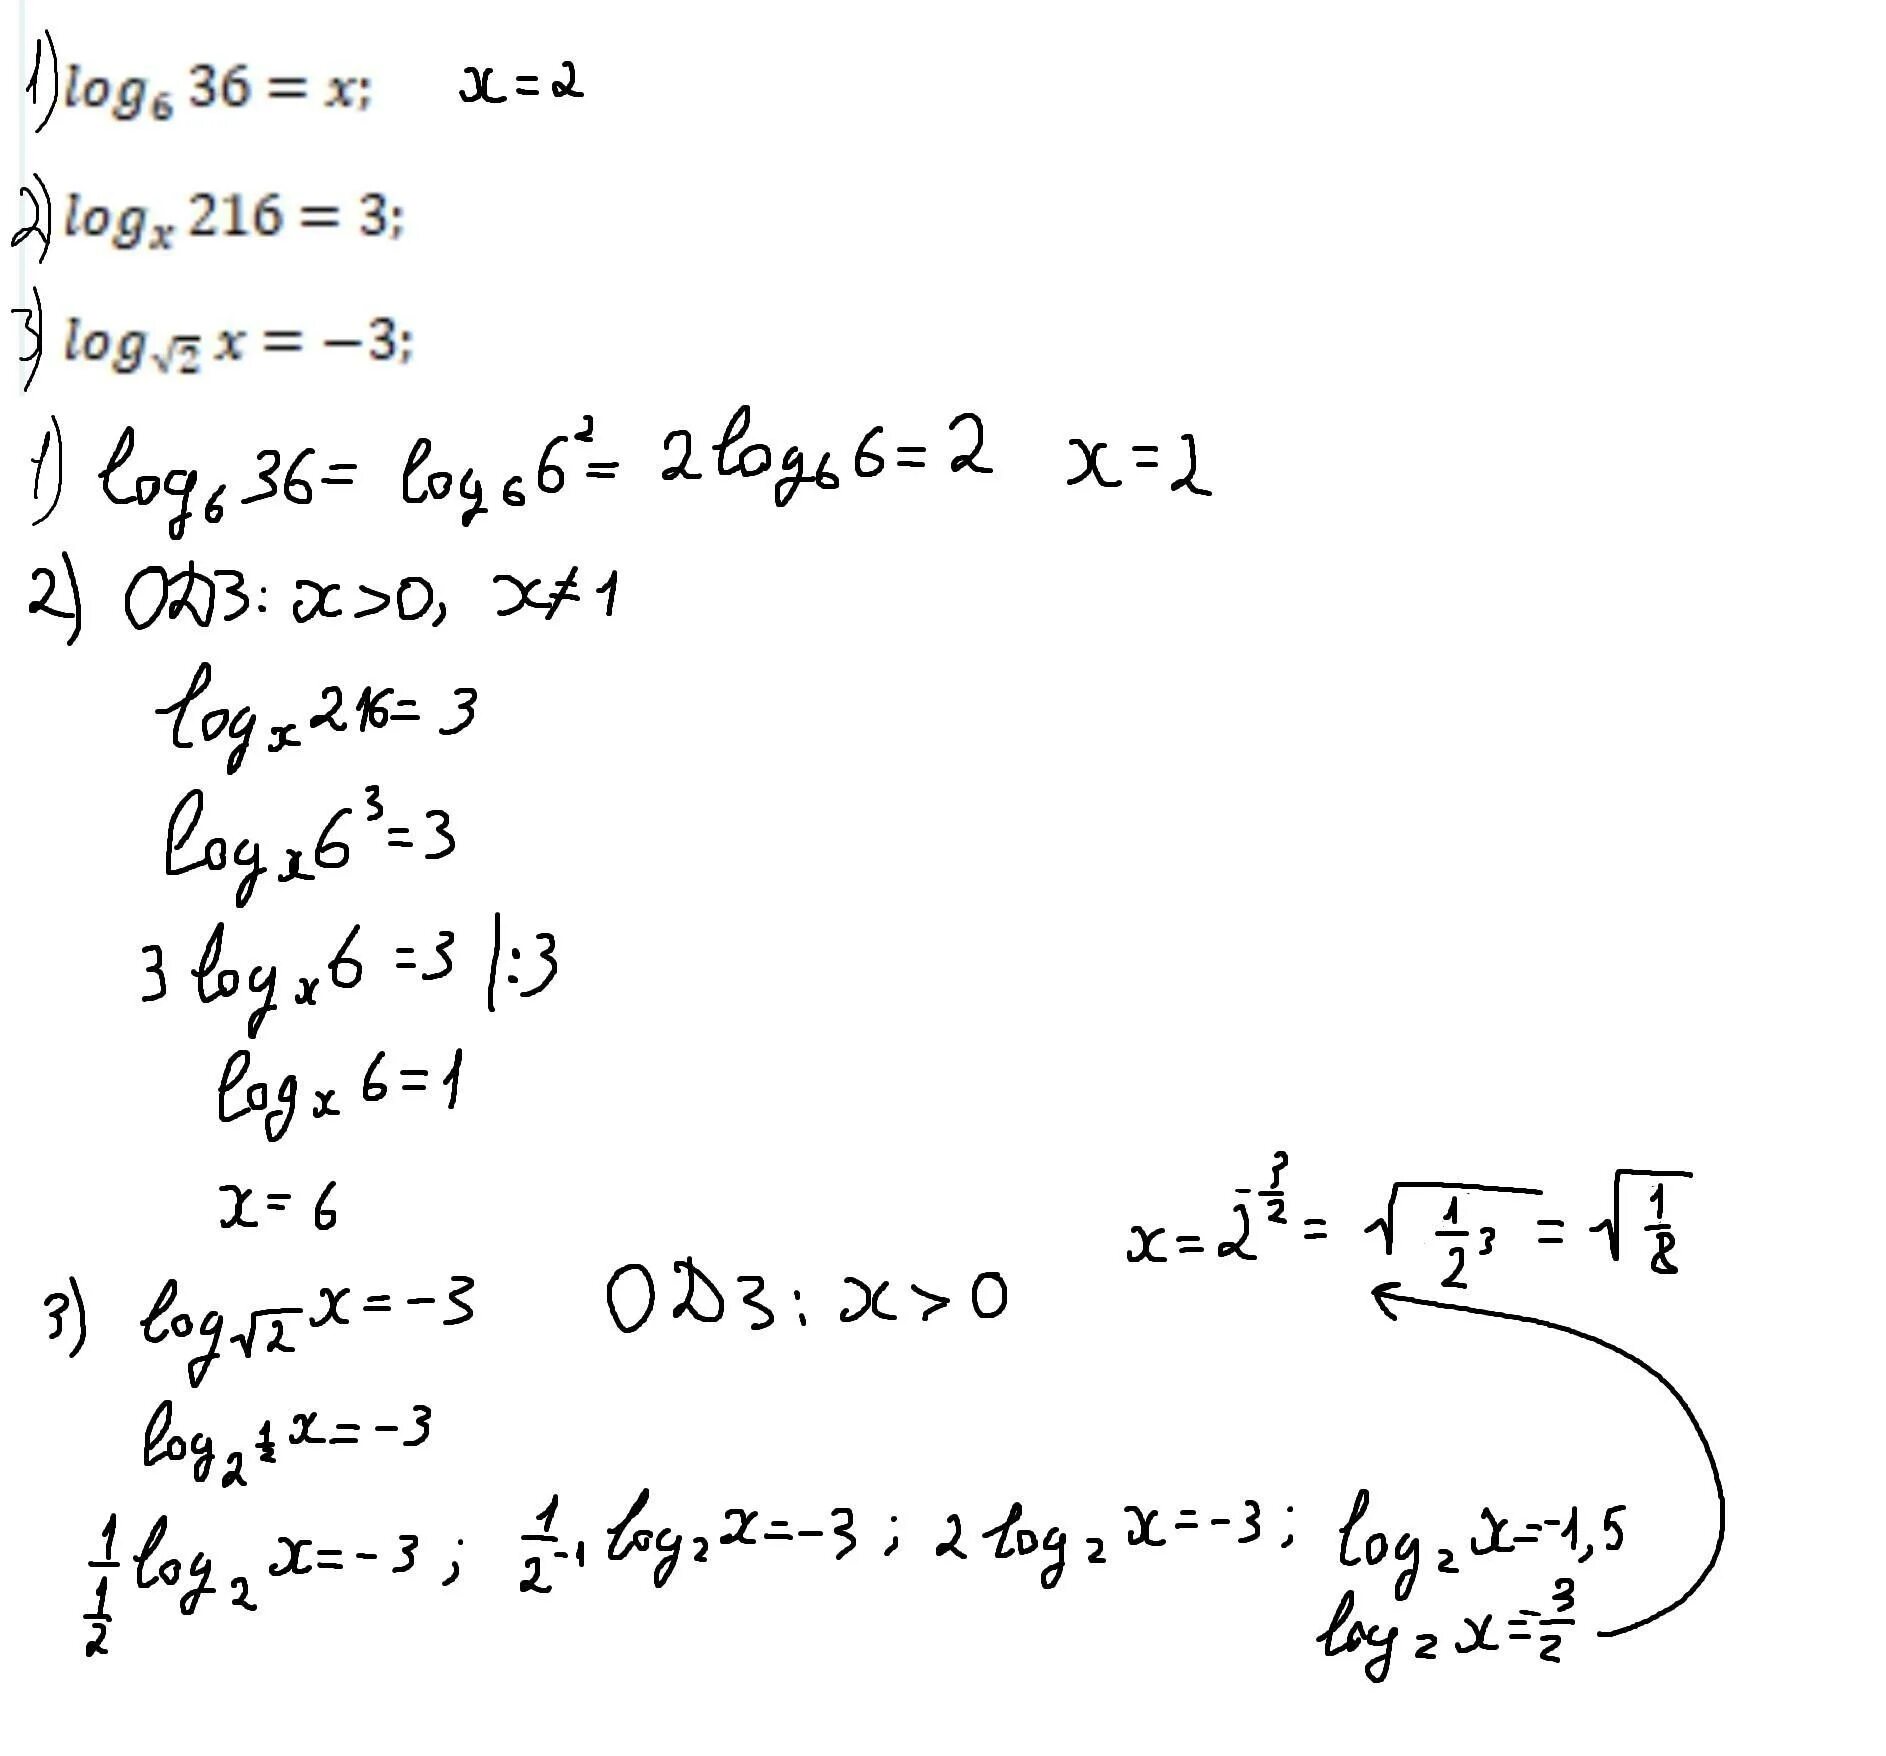 1) log₆ 36 = x; x = 2
2) logₓ 216 = 3;
3) log_√2 x = −3;
1) log₆ 36 = log₆ 6² = 2 log₆ 6 = 2 x = 2
2) ОДЗ: x > 0, x ≠ 1
logₓ 216 = 3
logₓ 6³ = 3
3 logₓ 6 = 3 |:3
logₓ 6 = 1
x = 6
3) log_√2 x = −3 ОДЗ: x > 0
log_2^(1/2) x = −3
1/(1/2) log₂ x = −3; 1/2⁻¹ log₂ x = −3; 2 log₂ x = −3; log₂ x = −1,5
log₂ x = −3/2
x = 2^(−3/2) = √(1/2 ³) = √(1/8)